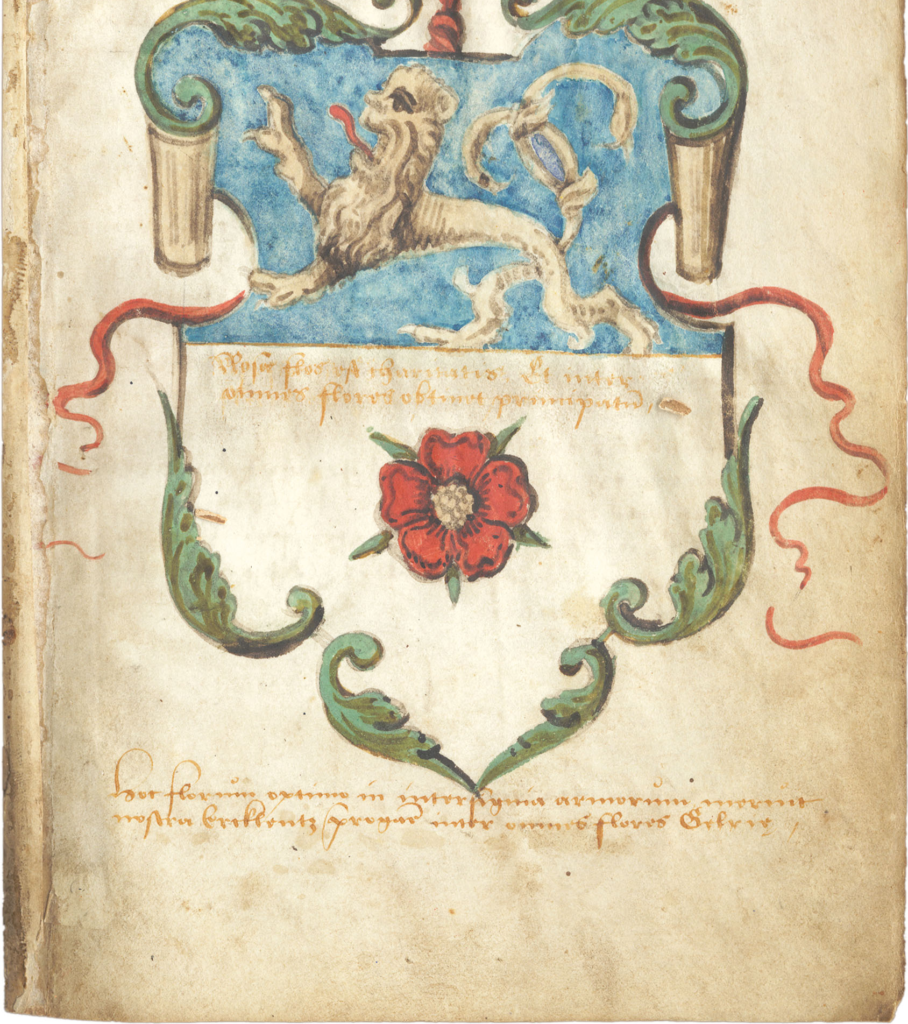 flos est charitatis Et inter
omnes flores obtinet principatū,
Hoc florum optimo in intersignia armorum meruit
nostra Ercklentz inter omnes flores Gelrię,